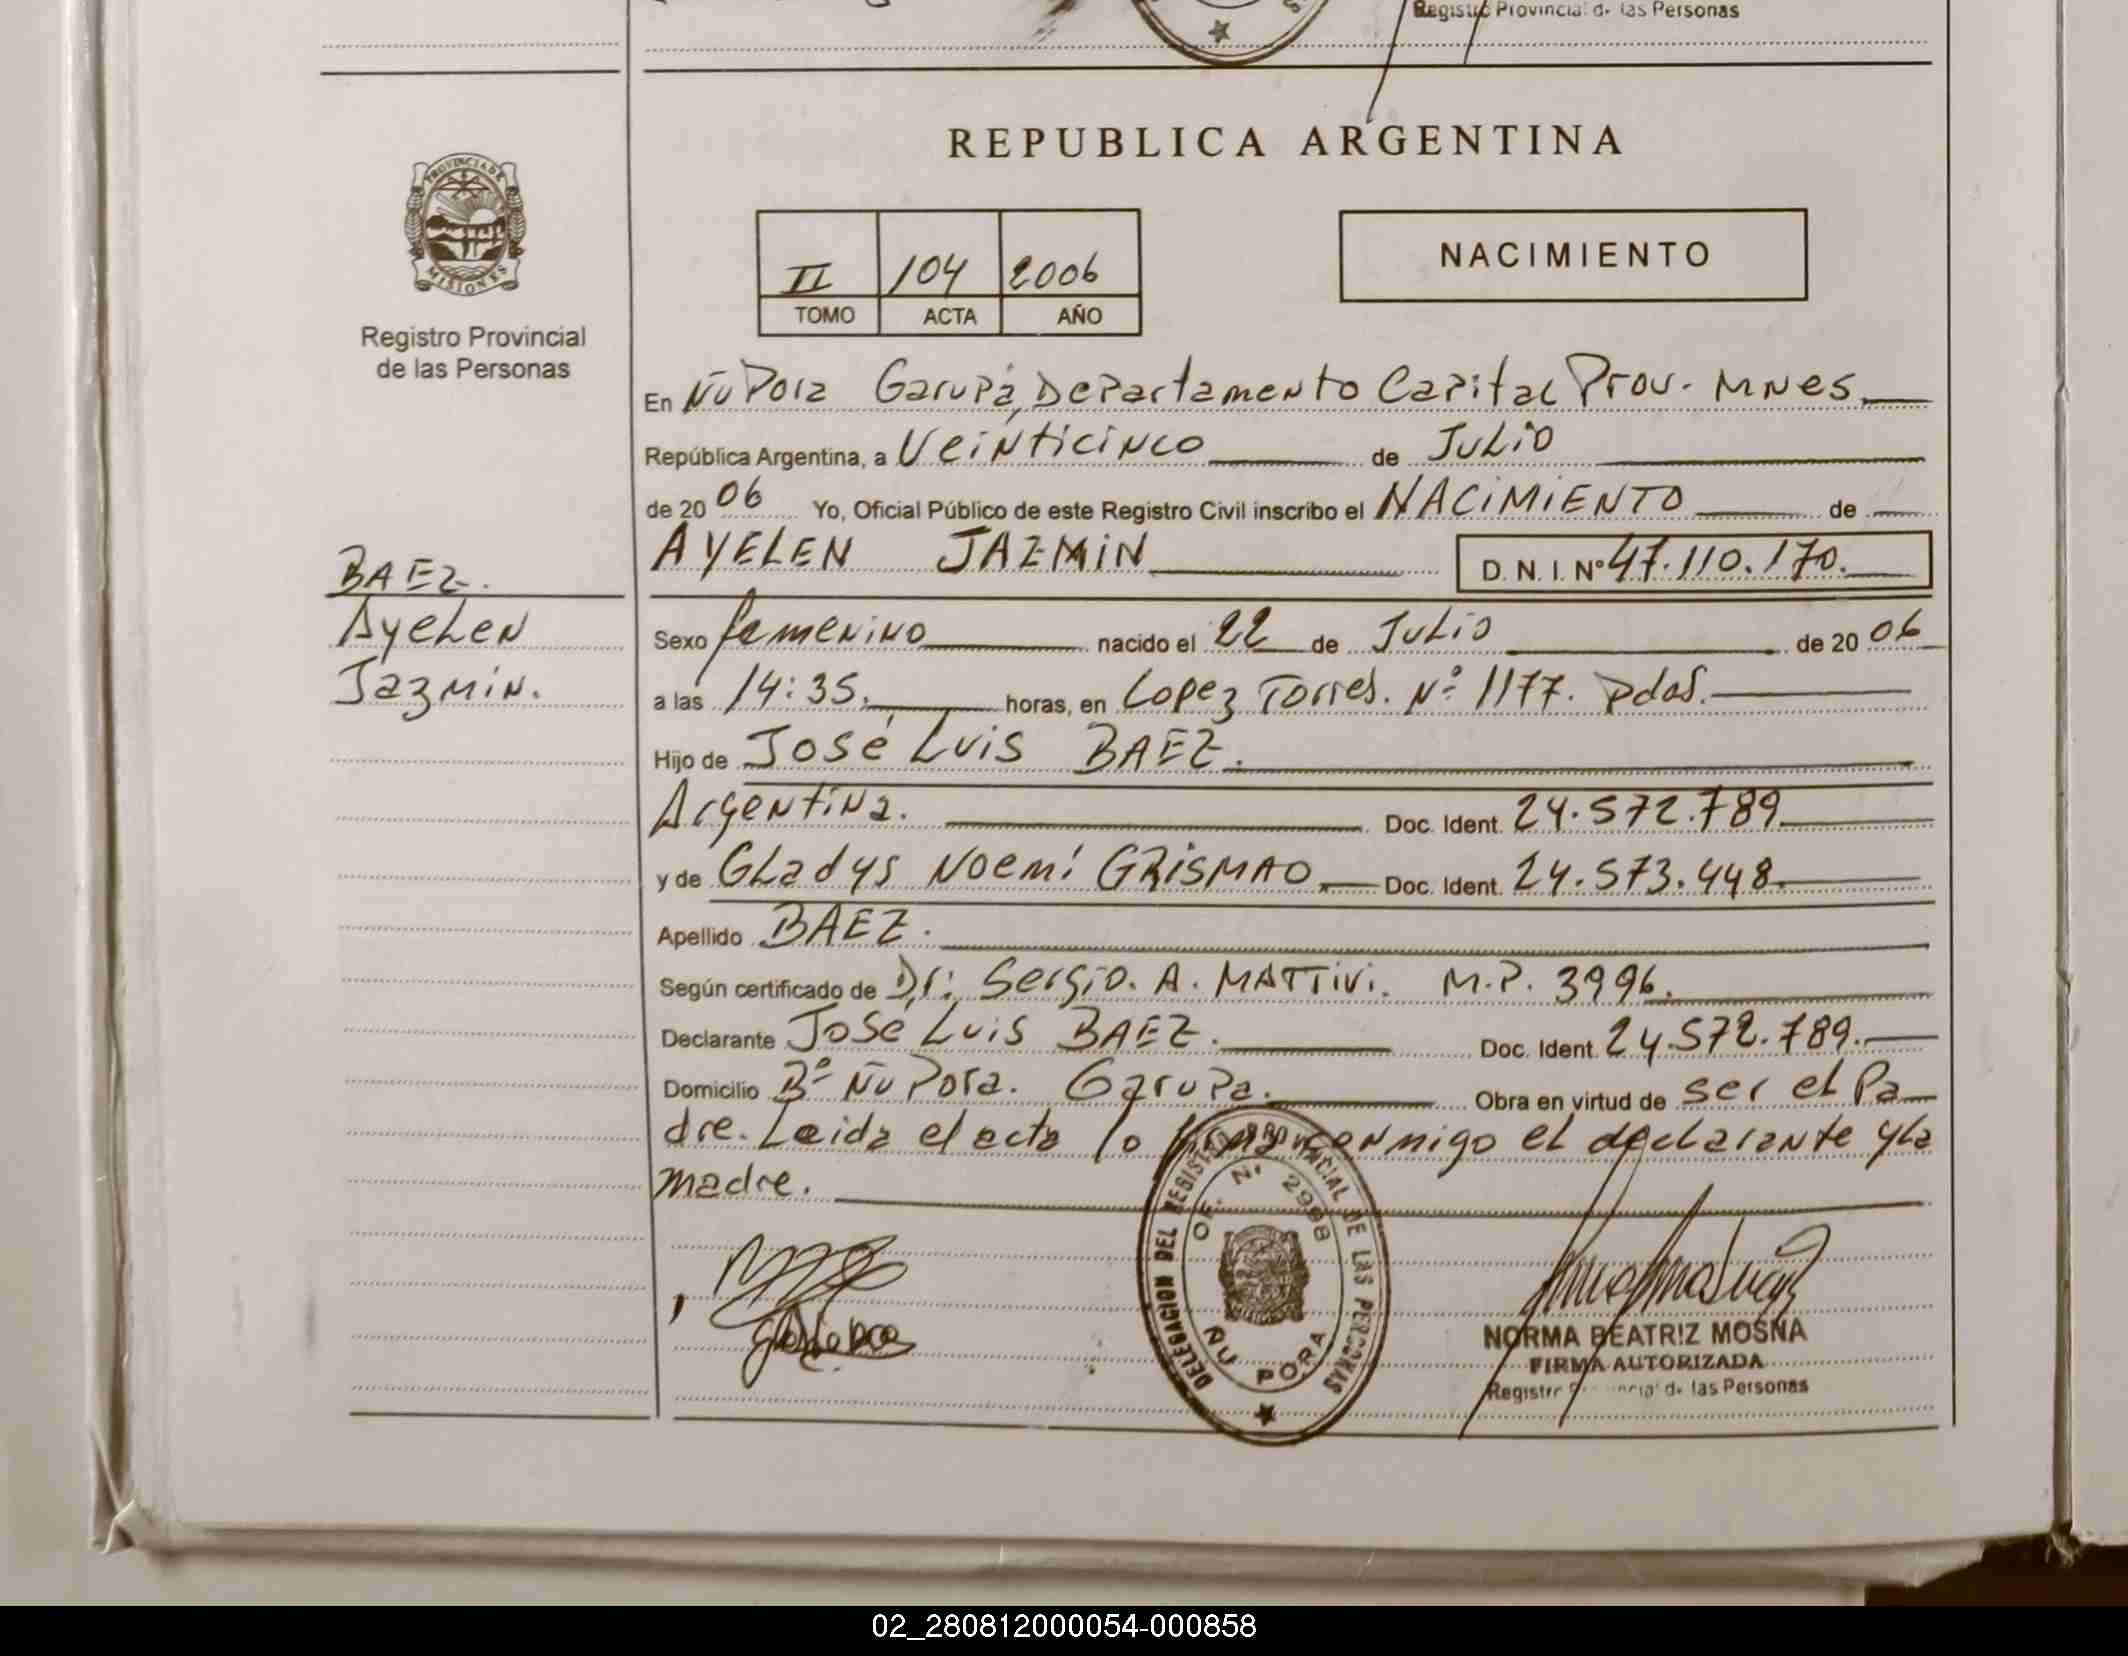 Registro Provincial de las Personas
REPUBLICA ARGENTINA
PROVINCIA DE
MISIONES
Registro Provincial
de las Personas
II 104 2006
TOMO ACTA AÑO
NACIMIENTO
En Ñu Pora Garupá, Departamento Capital Prov. MNES.
República Argentina, a Veinticinco de Julio
de 2006 Yo, Oficial Público de este Registro Civil inscribo el NACIMIENTO de
AYELEN JAZMIN D.N.I. Nº 47.110.170.
BAEZ.
Ayelen
Jazmin.
Sexo femenino nacido el 22 de Julio de 2006
a las 14:35. horas, en Lopez Torres. Nº 1177. Pdas.
Hijo de José Luis BAEZ.
Argentina. Doc. Ident. 24.572.789
y de Gladys Noemí GRISMAO. Doc. Ident. 24.573.448.
Apellido BAEZ.
Según certificado de Dr: Sergio. A. MATTIVI. M.P. 3996.
Declarante José Luis BAEZ. Doc. Ident. 24.572.789.
Domicilio Bº Ñu Pora. Garupa. Obra en virtud de ser el Pa
dre. Leida el acta lo firma conmigo el declarante y la
madre.
DELEGACION DEL REGISTRO PROVINCIAL DE LAS PERSONAS
OF. Nº 2998
ÑU PORA
NORMA BEATRIZ MOSNA
FIRMA AUTORIZADA
Registro Provincial de las Personas
02_280812000054-000858